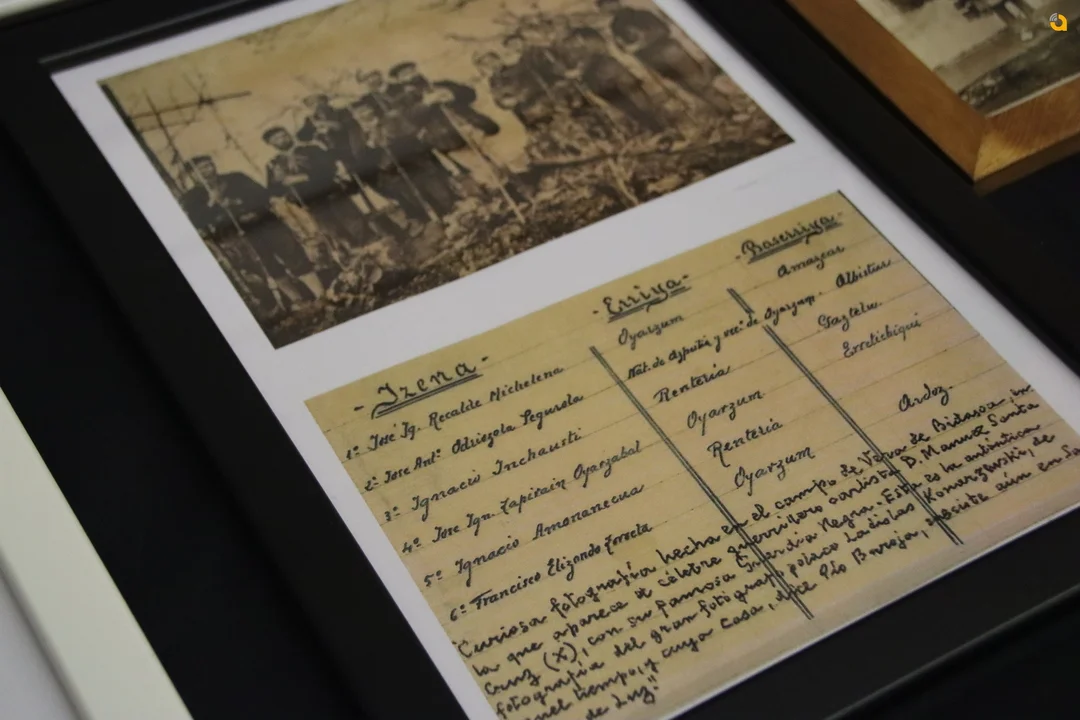 - Izena -
- Erriya -
- Baserriya -
1º José Ig. Recalde Michelena Oyarzum Amazcar
2º Jose Antº Odriozola Segurola Nat. de Azpeitia y vec.º de Oyarzum - Albistur
3º Ignacio Inchausti Renteria Gaztelu
4º Jose Ign. Zapirain Oyarzabal Oyarzum Erretichiqui
5º Ignacio Amonanecua Renteria
6º Francisco Elizondo Zorrota Oyarzum Ardoz
"Curiosa fotografía hecha en el campo de Vera de Bidasoa, en
la que aparece el célebre guerrillero carlista D. Manuel Santa
Cruz (X), con su famosa Guardia Negra. Esta es la auténtica
fotografía del gran fotografo polaco Ladislas Konarzewski, de
aquel tiempo, y cuya casa, dice Pío Baroja, existía aún en San
de Luz."